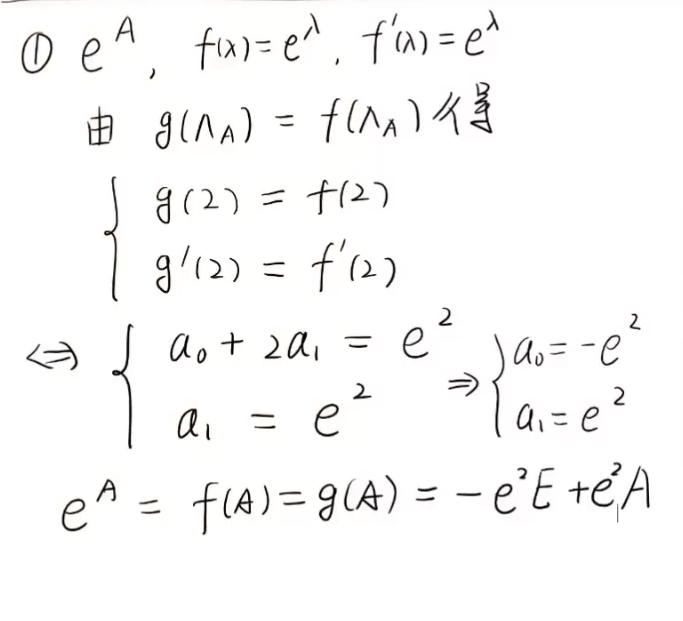 ① e^A, f(λ)=e^λ, f'(λ)=e^λ
由 g(Λ_A) = f(Λ_A) 得
{ g(2) = f(2)
g'(2) = f'(2)
⇔ { a₀ + 2a₁ = e² ⇒ { a₀ = -e²
a₁ = e² a₁ = e²
e^A = f(A) = g(A) = -e²E + e²A